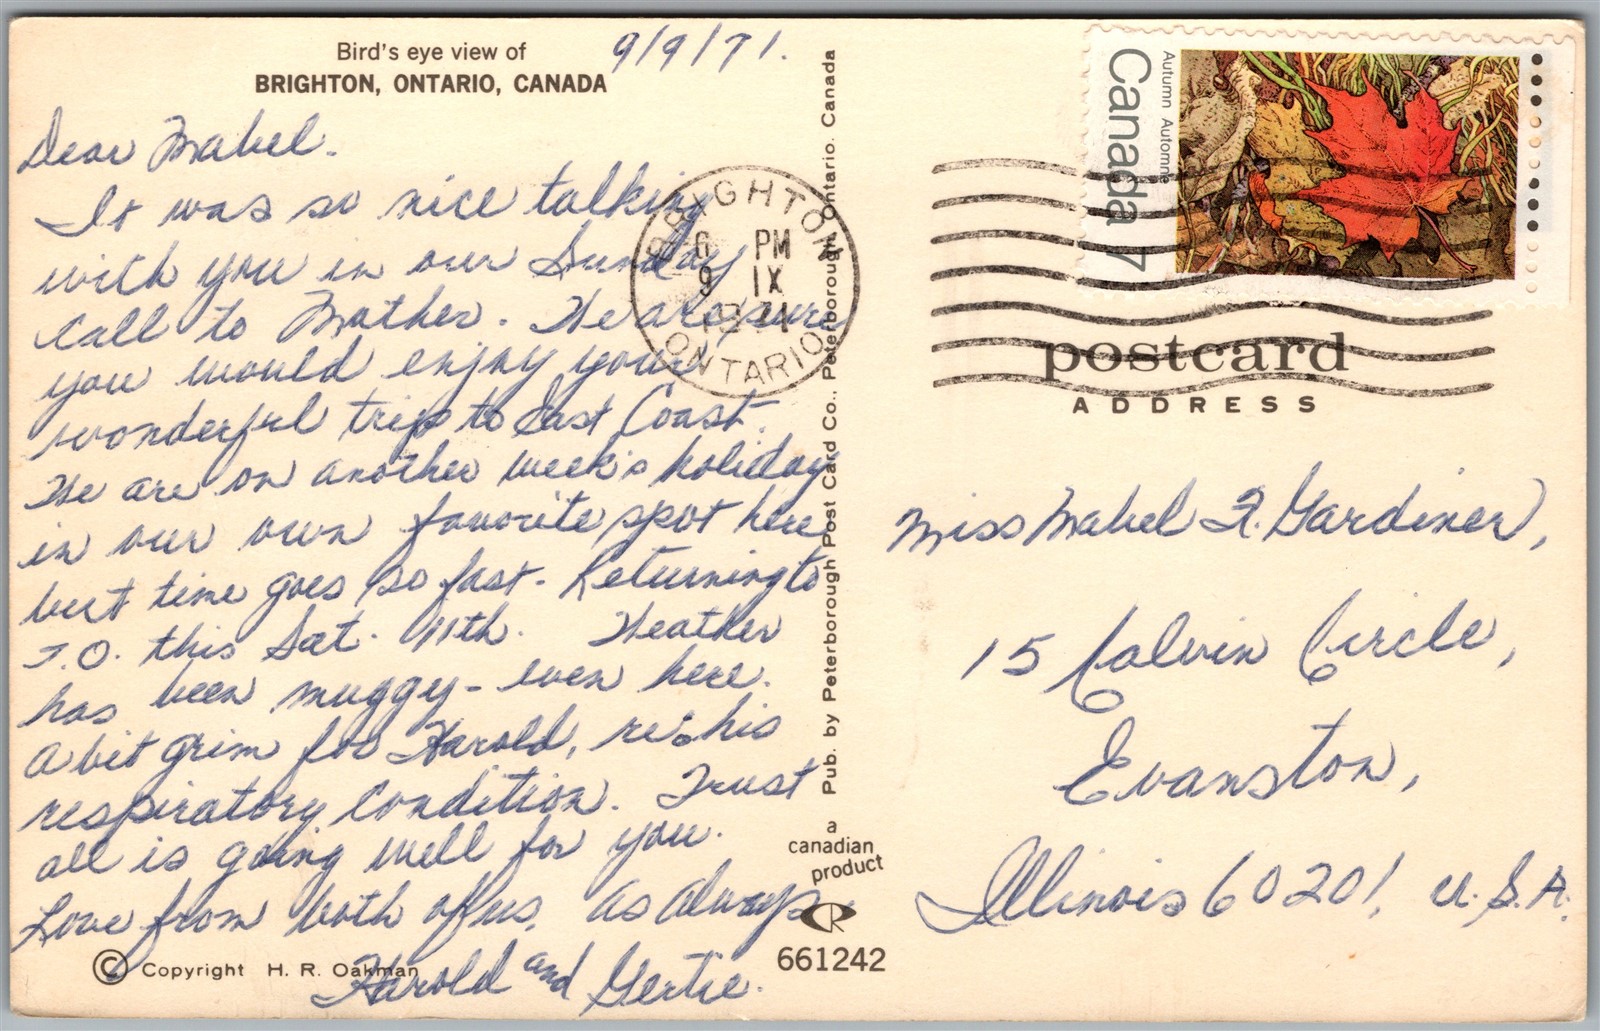 Bird's eye view of
BRIGHTON, ONTARIO, CANADA
9/9/71.
Dear Mabel.
It was so nice talking
with you in our Sunday
Call to Mother. We are sure
you would enjoy your
wonderful trip to East Coast.
We are on another week's holiday
in our own favorite spot here
but time goes so fast - Returning to
T.O. this Sat. 11th. Weather
has been muggy - even here.
A bit grim for Harold, re: his
respiratory condition. Trust
all is going well for you.
Love from both of us, As Always
Harold and Gertie.
© Copyright H. R. Oakman
Pub. by Peterborough Post Card Co., Peterborough, Ontario. Canada
a
canadian
product
CR
661242
BRIGHTON
6 PM
9 IX
1971
ONTARIO
Canada 7
Autumn Automne
postcard
ADDRESS
Miss Mabel F. Gardiner,
15 Calvin Circle,
Evanston,
Illinois 60201, U.S.A.